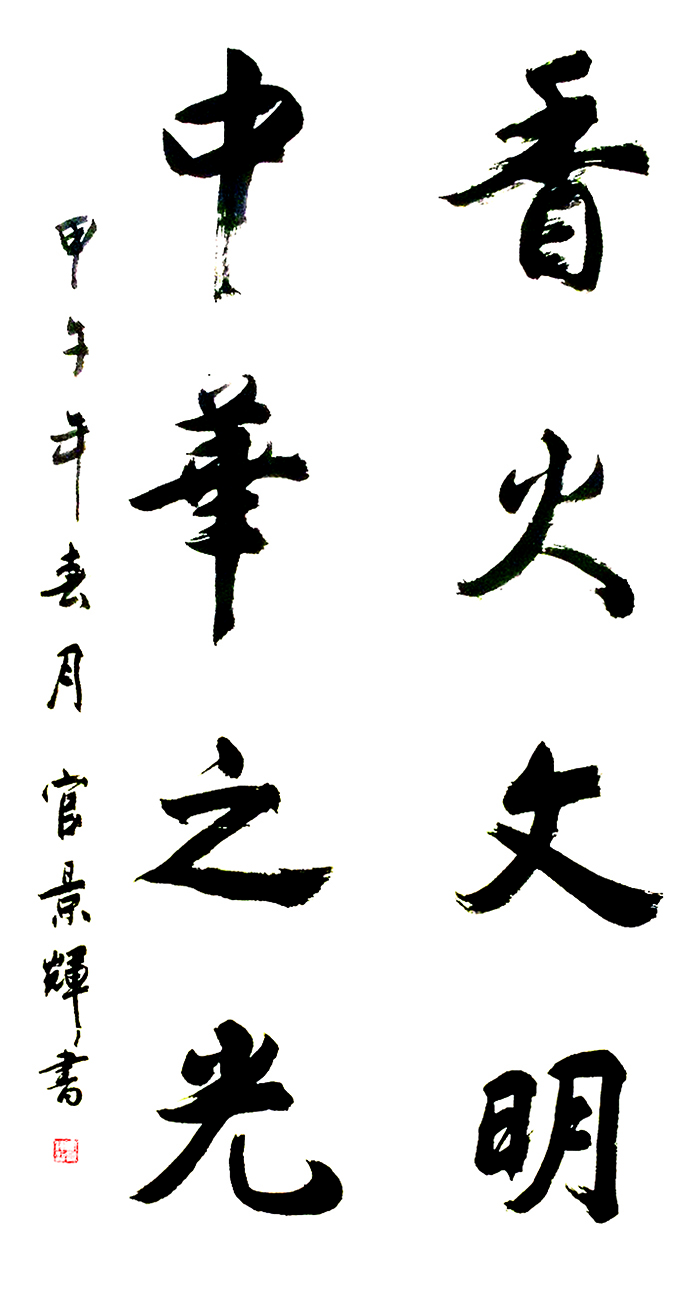 香火文明
中華之光
甲午年春月 官景輝書